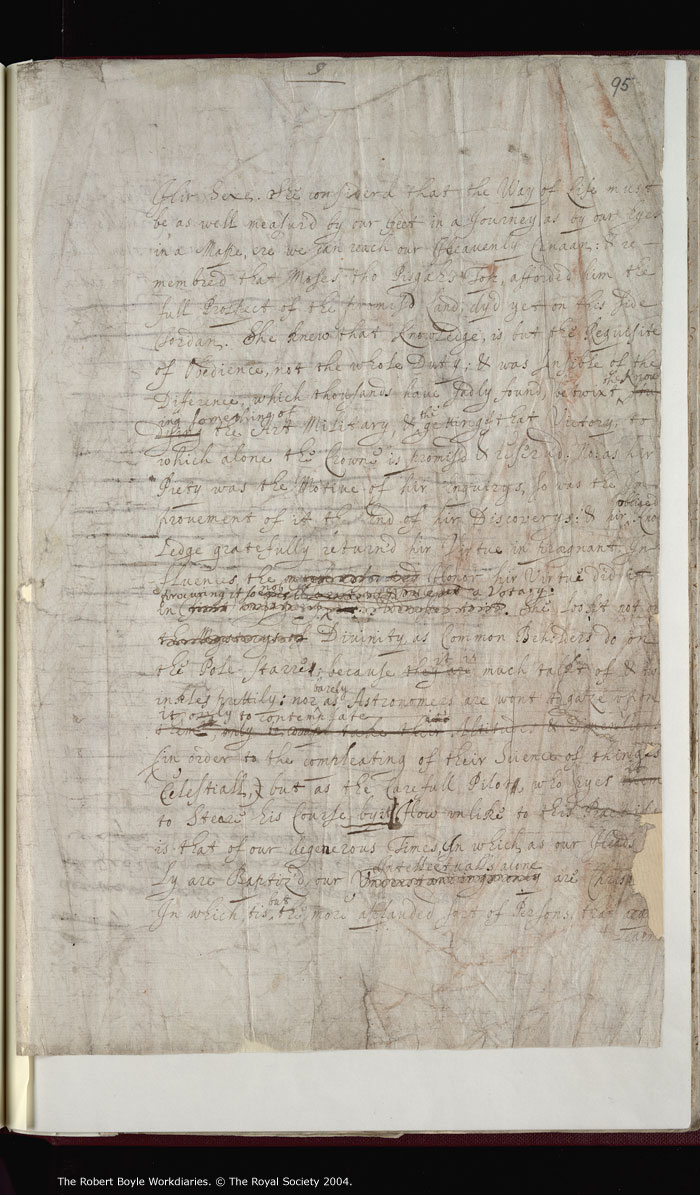 9
95
hir Sexe. She consider'd that the Way of Life must
be as well measur'd by our Feet in a Journey as by our Eyes
in a Mappe, ere we can reach our Heavenly Canaan: & re-
membred that Moses tho Pisgahs Top, afforded him the
full Prospect of the promis'd Land, dy'd yet on this side
Jordan. She knew that Knowledge, is but the Requisite
of Obedience, not the whole Duty; & was sensible of the
Difference, which thousands have sadly found, betwixt the Know
ing something of
the Art Military, & the getting that Victory, to
which alone the Crowne is promis'd & reserv'd. No: as hir
Piety was the Motive of hir Inquirys, so was the Im-
provement of it the End of hir Discoverys: & hir obliged Know
ledge gratefully return'd hir Virtue in praegnant In-
fluences, the Honor hir Virtue did it,
in procuring it so a Votary.
She look't not on
Divinity as Common Beholders do on
the Pole-starre, because much talk't of &
inselesputtily: nor as barely Astronomers are wont to gaze upon
it only to contemplate
(in order to the compleating of their Science of things
Celestiall,) but as the Carefull Pilot, who eyes
to Steere his Course by it. How unlike to this Practise
is that of our degenerous Times, In which, as our Heads
ly are Baptiz'd, our Intellectualls alone are Christ
In which tis but the more applauded sort of Persons, that
learn
The Robert Boyle Workdiaries. © The Royal Society 2004.